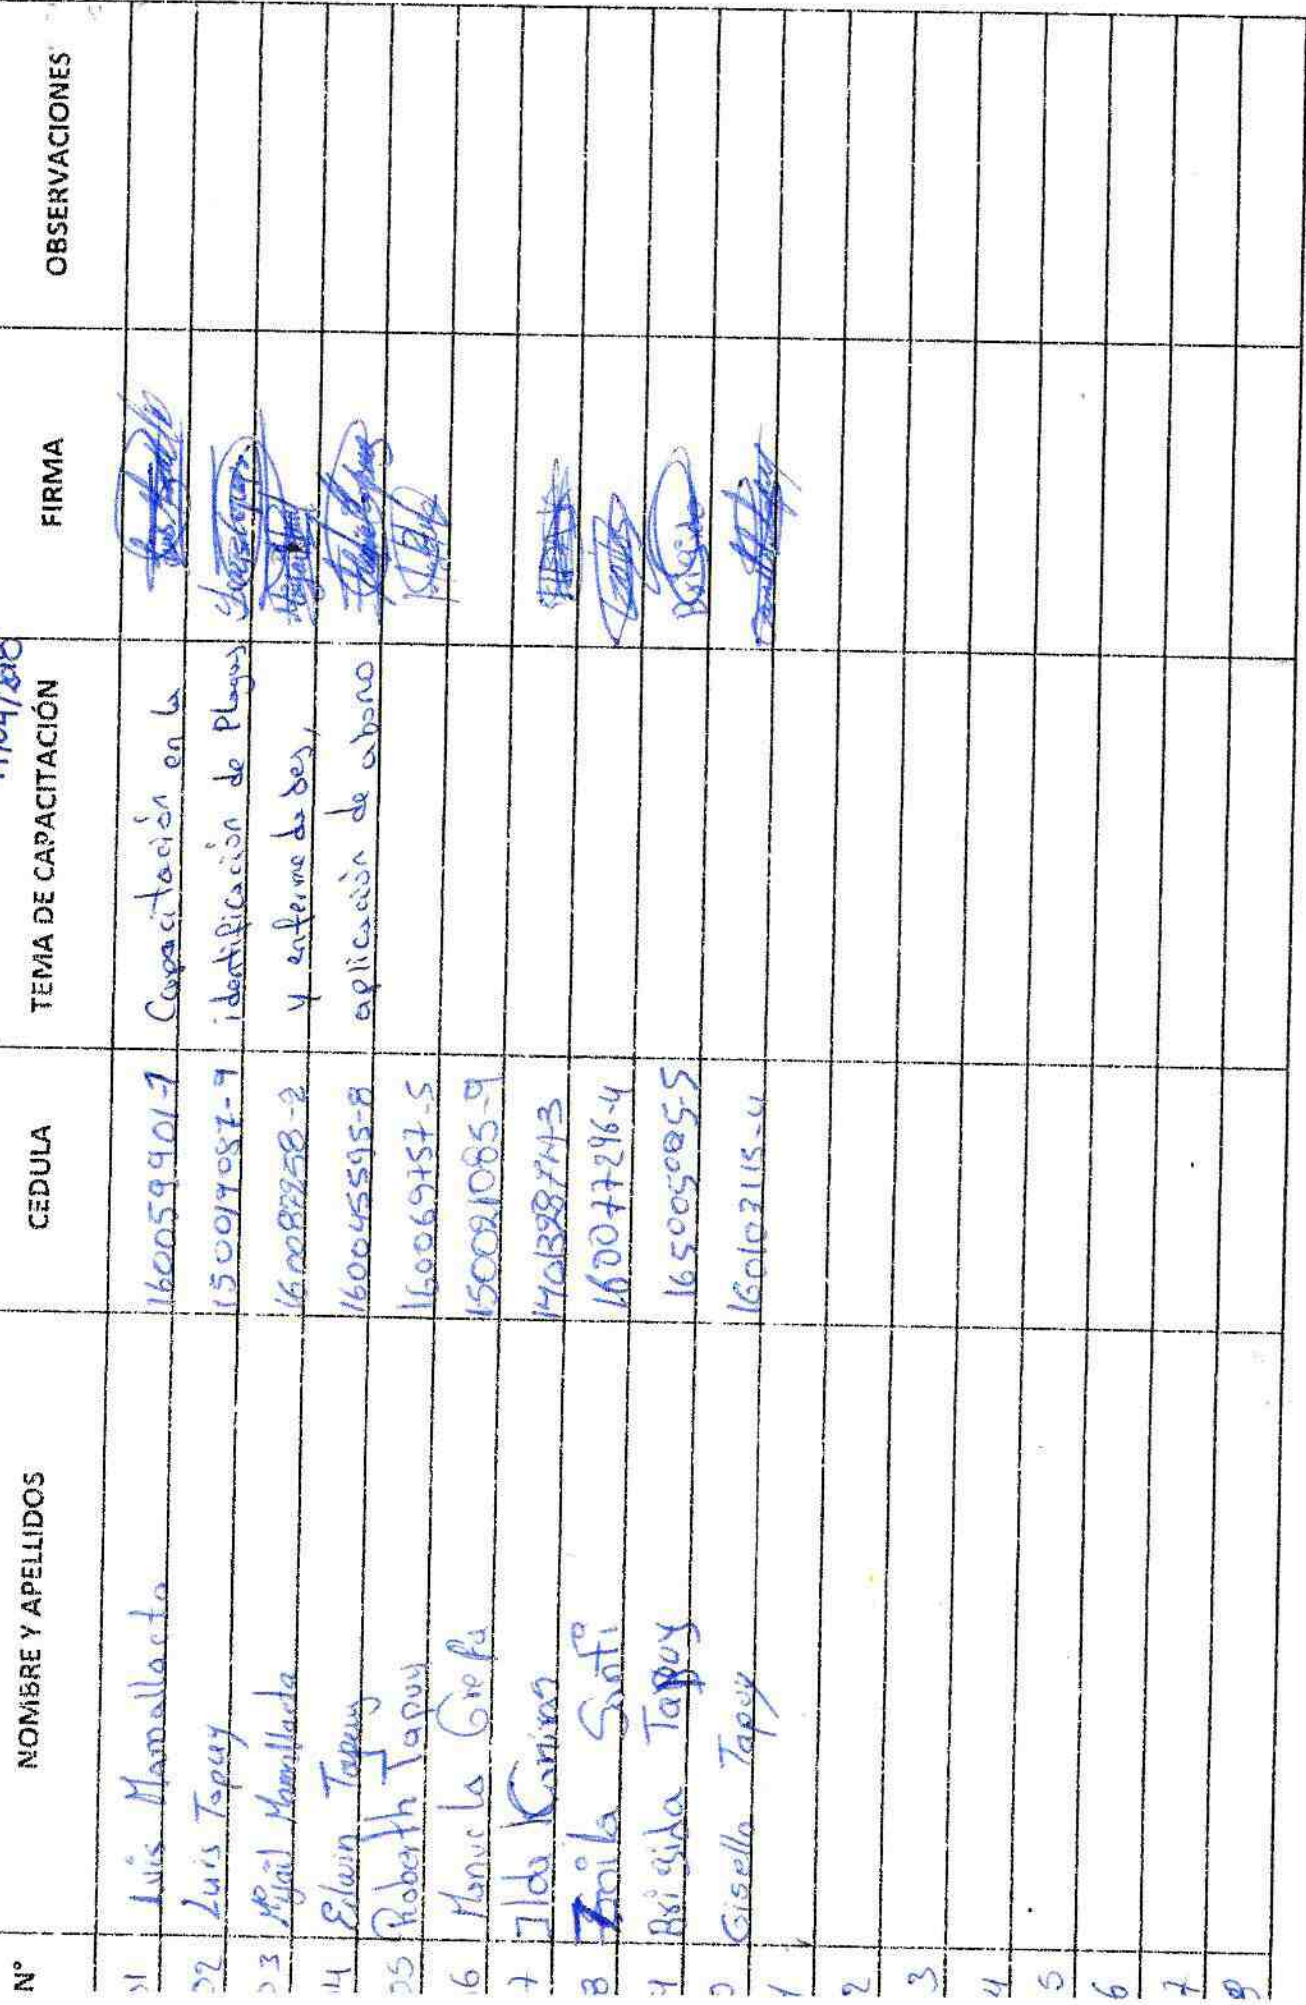 11/04/2010
N° NOMBRE Y APELLIDOS CEDULA TEMA DE CAPACITACIÓN FIRMA OBSERVACIONES
01 Luis Mamallacta 160059901-7 Capacitación en la
02 Luis Tapuy 150019087-9 identificación de Plagas
03 Mijail Mamallacta 160087958-2 y enfermedades,
04 Edwin Tapuy 160045595-8 aplicación de abono
05 Roberth Tapuy 160069757-5
6 Manuela Grefa 150021085-9
7 Ilda Kaniras
8 Zoila Santi 160077296-4
9 Brigida Tapuy 165005085-5
0 Gisella Tapuy 160103115-4
1
2
3
4
5
6
7
8